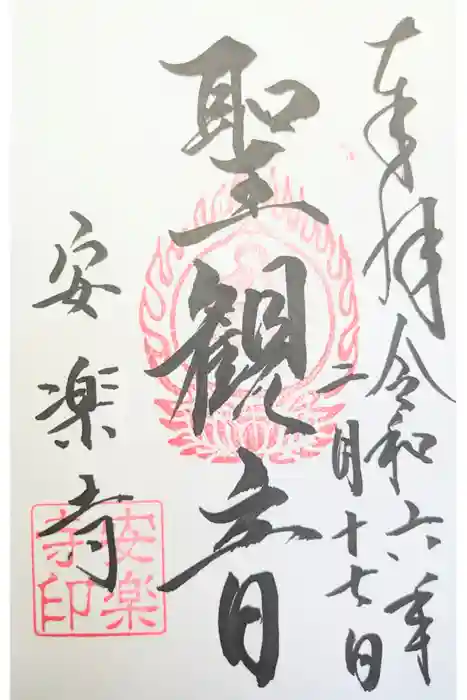 奉拝
令和六年
二月十七日
聖観音
安楽寺
安楽
寺印